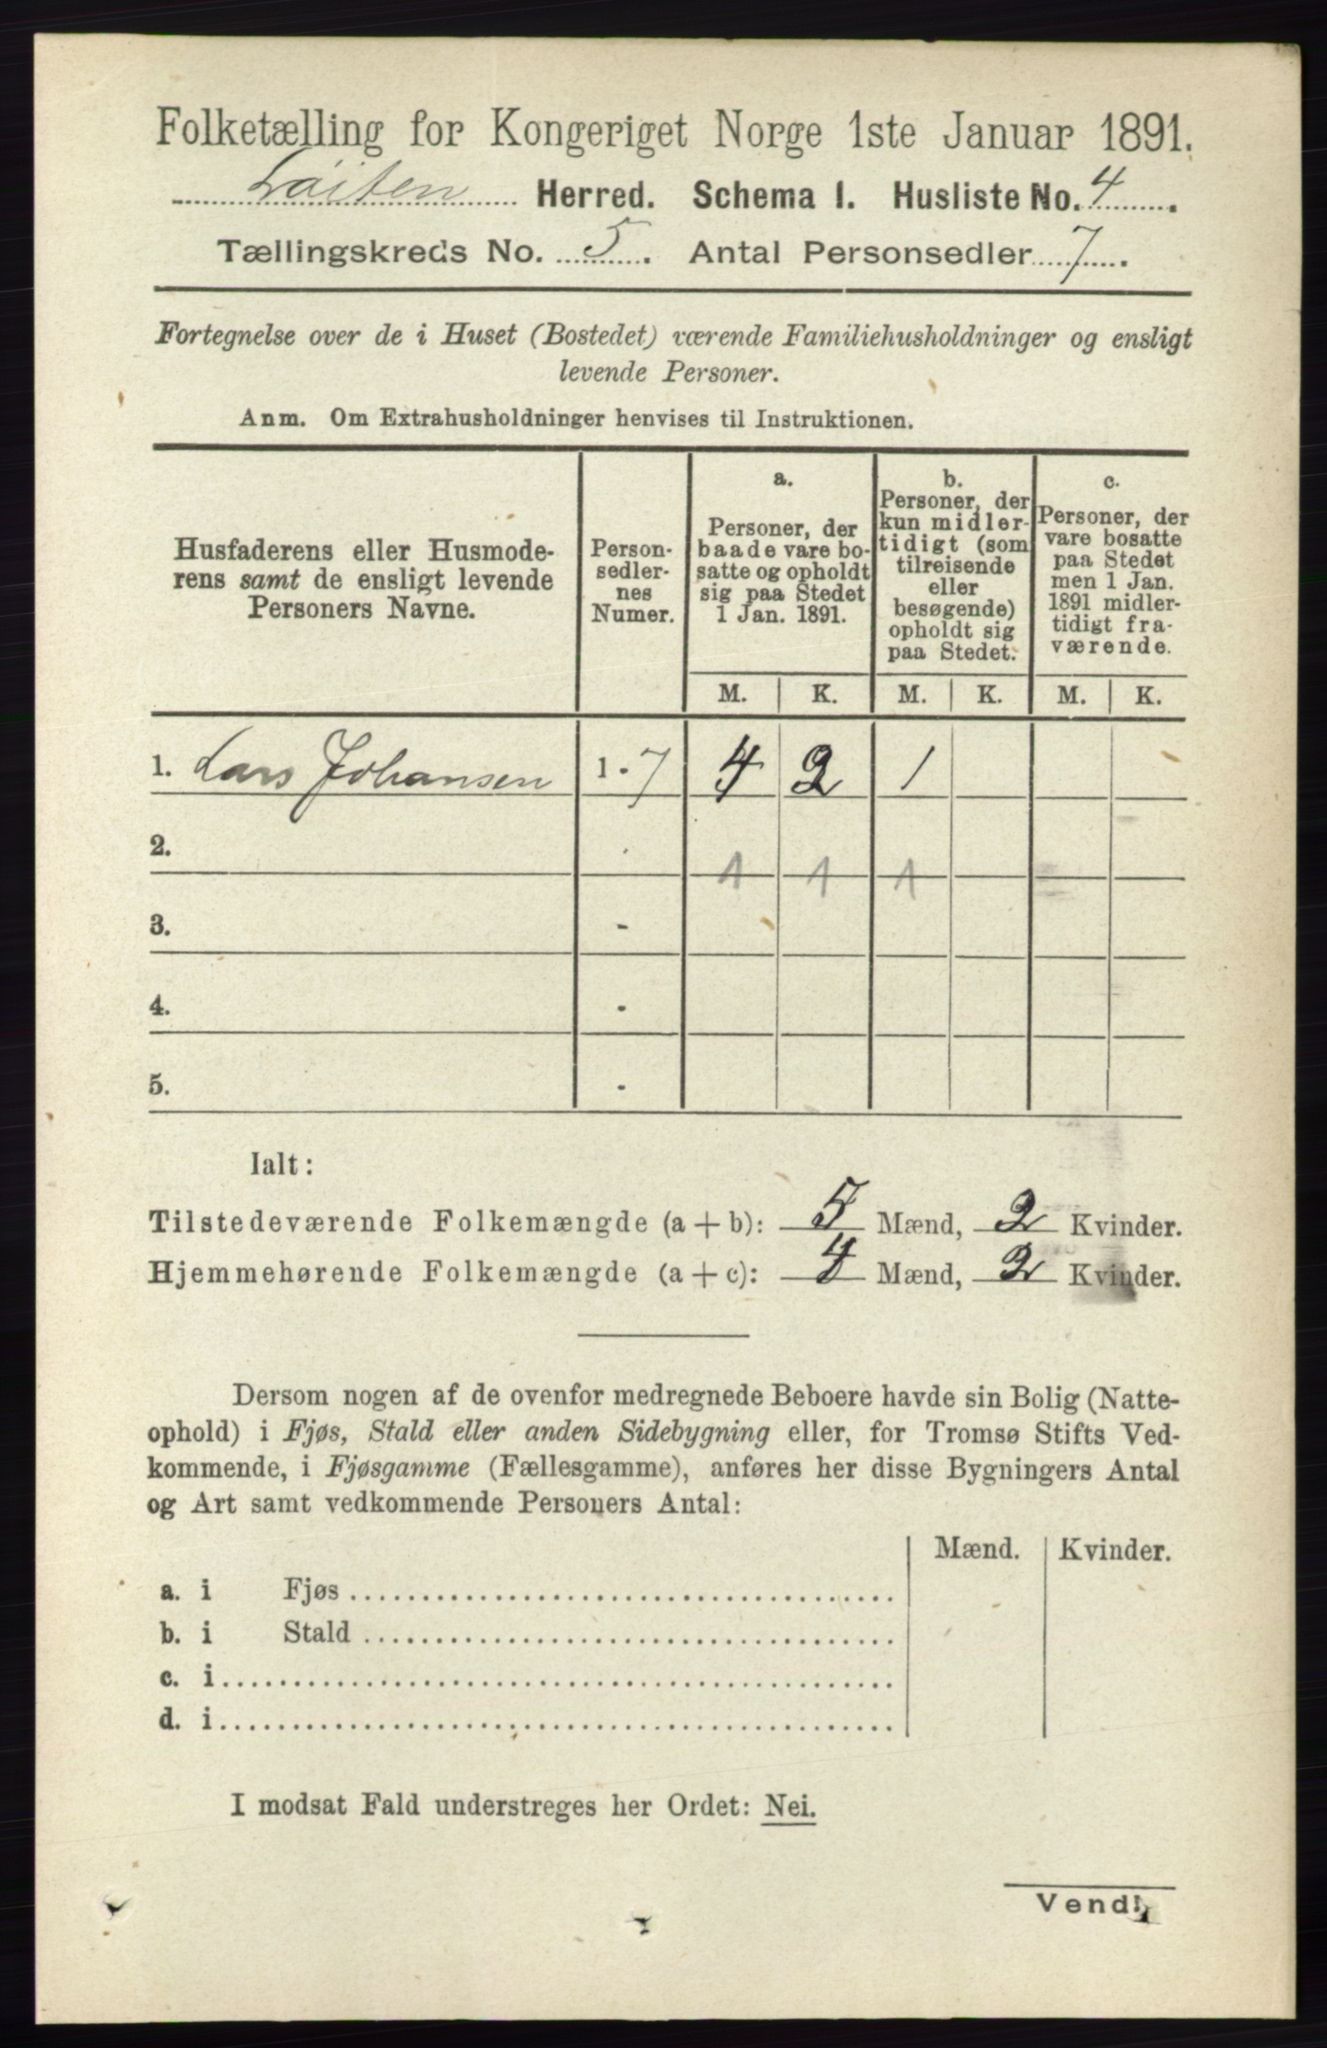 Folketælling for Kongeriget Norge 1ste Januar 1891.
Løiten Herred. Schema I. Husliste No. 4.
Tællingskreds No. 5. Antal Personsedler 7.
Fortegnelse over de i Huset (Bostedet) værende Familiehusholdninger og ensligt
levende Personer.
Anm. Om Extrahusholdninger henvises til Instruktionen.
Husfaderens eller Husmode-
rens samt de ensligt levende
Personers Navne.
Person-
sedler-
nes
Numer.
a.
Personer, der
baade vare bo-
satte og opholdt
sig paa Stedet
1 Jan. 1891.
b.
Personer, der
kun midler-
tidigt (som
tilreisende
eller
besøgende)
opholdt sig
paa Stedet.
c.
Personer, der
vare bosatte
paa Stedet
men 1 Jan.
1891 midler-
tidigt fra-
værende.
M. K. M. K. M. K.
1. Lars Johansen 1 - 7 4 2 1
2. 1 1 1
3. -
4. -
5. -
Ialt:
Tilstedeværende Folkemængde (a + b): 5 Mænd, 2 Kvinder.
Hjemmehørende Folkemængde (a + c): 4 Mænd, 2 Kvinder.
Dersom nogen af de ovenfor medregnede Beboere havde sin Bolig (Natte-
ophold) i Fjøs, Stald eller anden Sidebygning eller, for Tromsø Stifts Ved-
kommende, i Fjøsgamme (Fællesgamme), anføres her disse Bygningers Antal
og Art samt vedkommende Personers Antal:
Mænd. Kvinder.
a. i Fjøs
b. i Stald
c. i
d. i
I modsat Fald understreges her Ordet: Nei.
Vend!